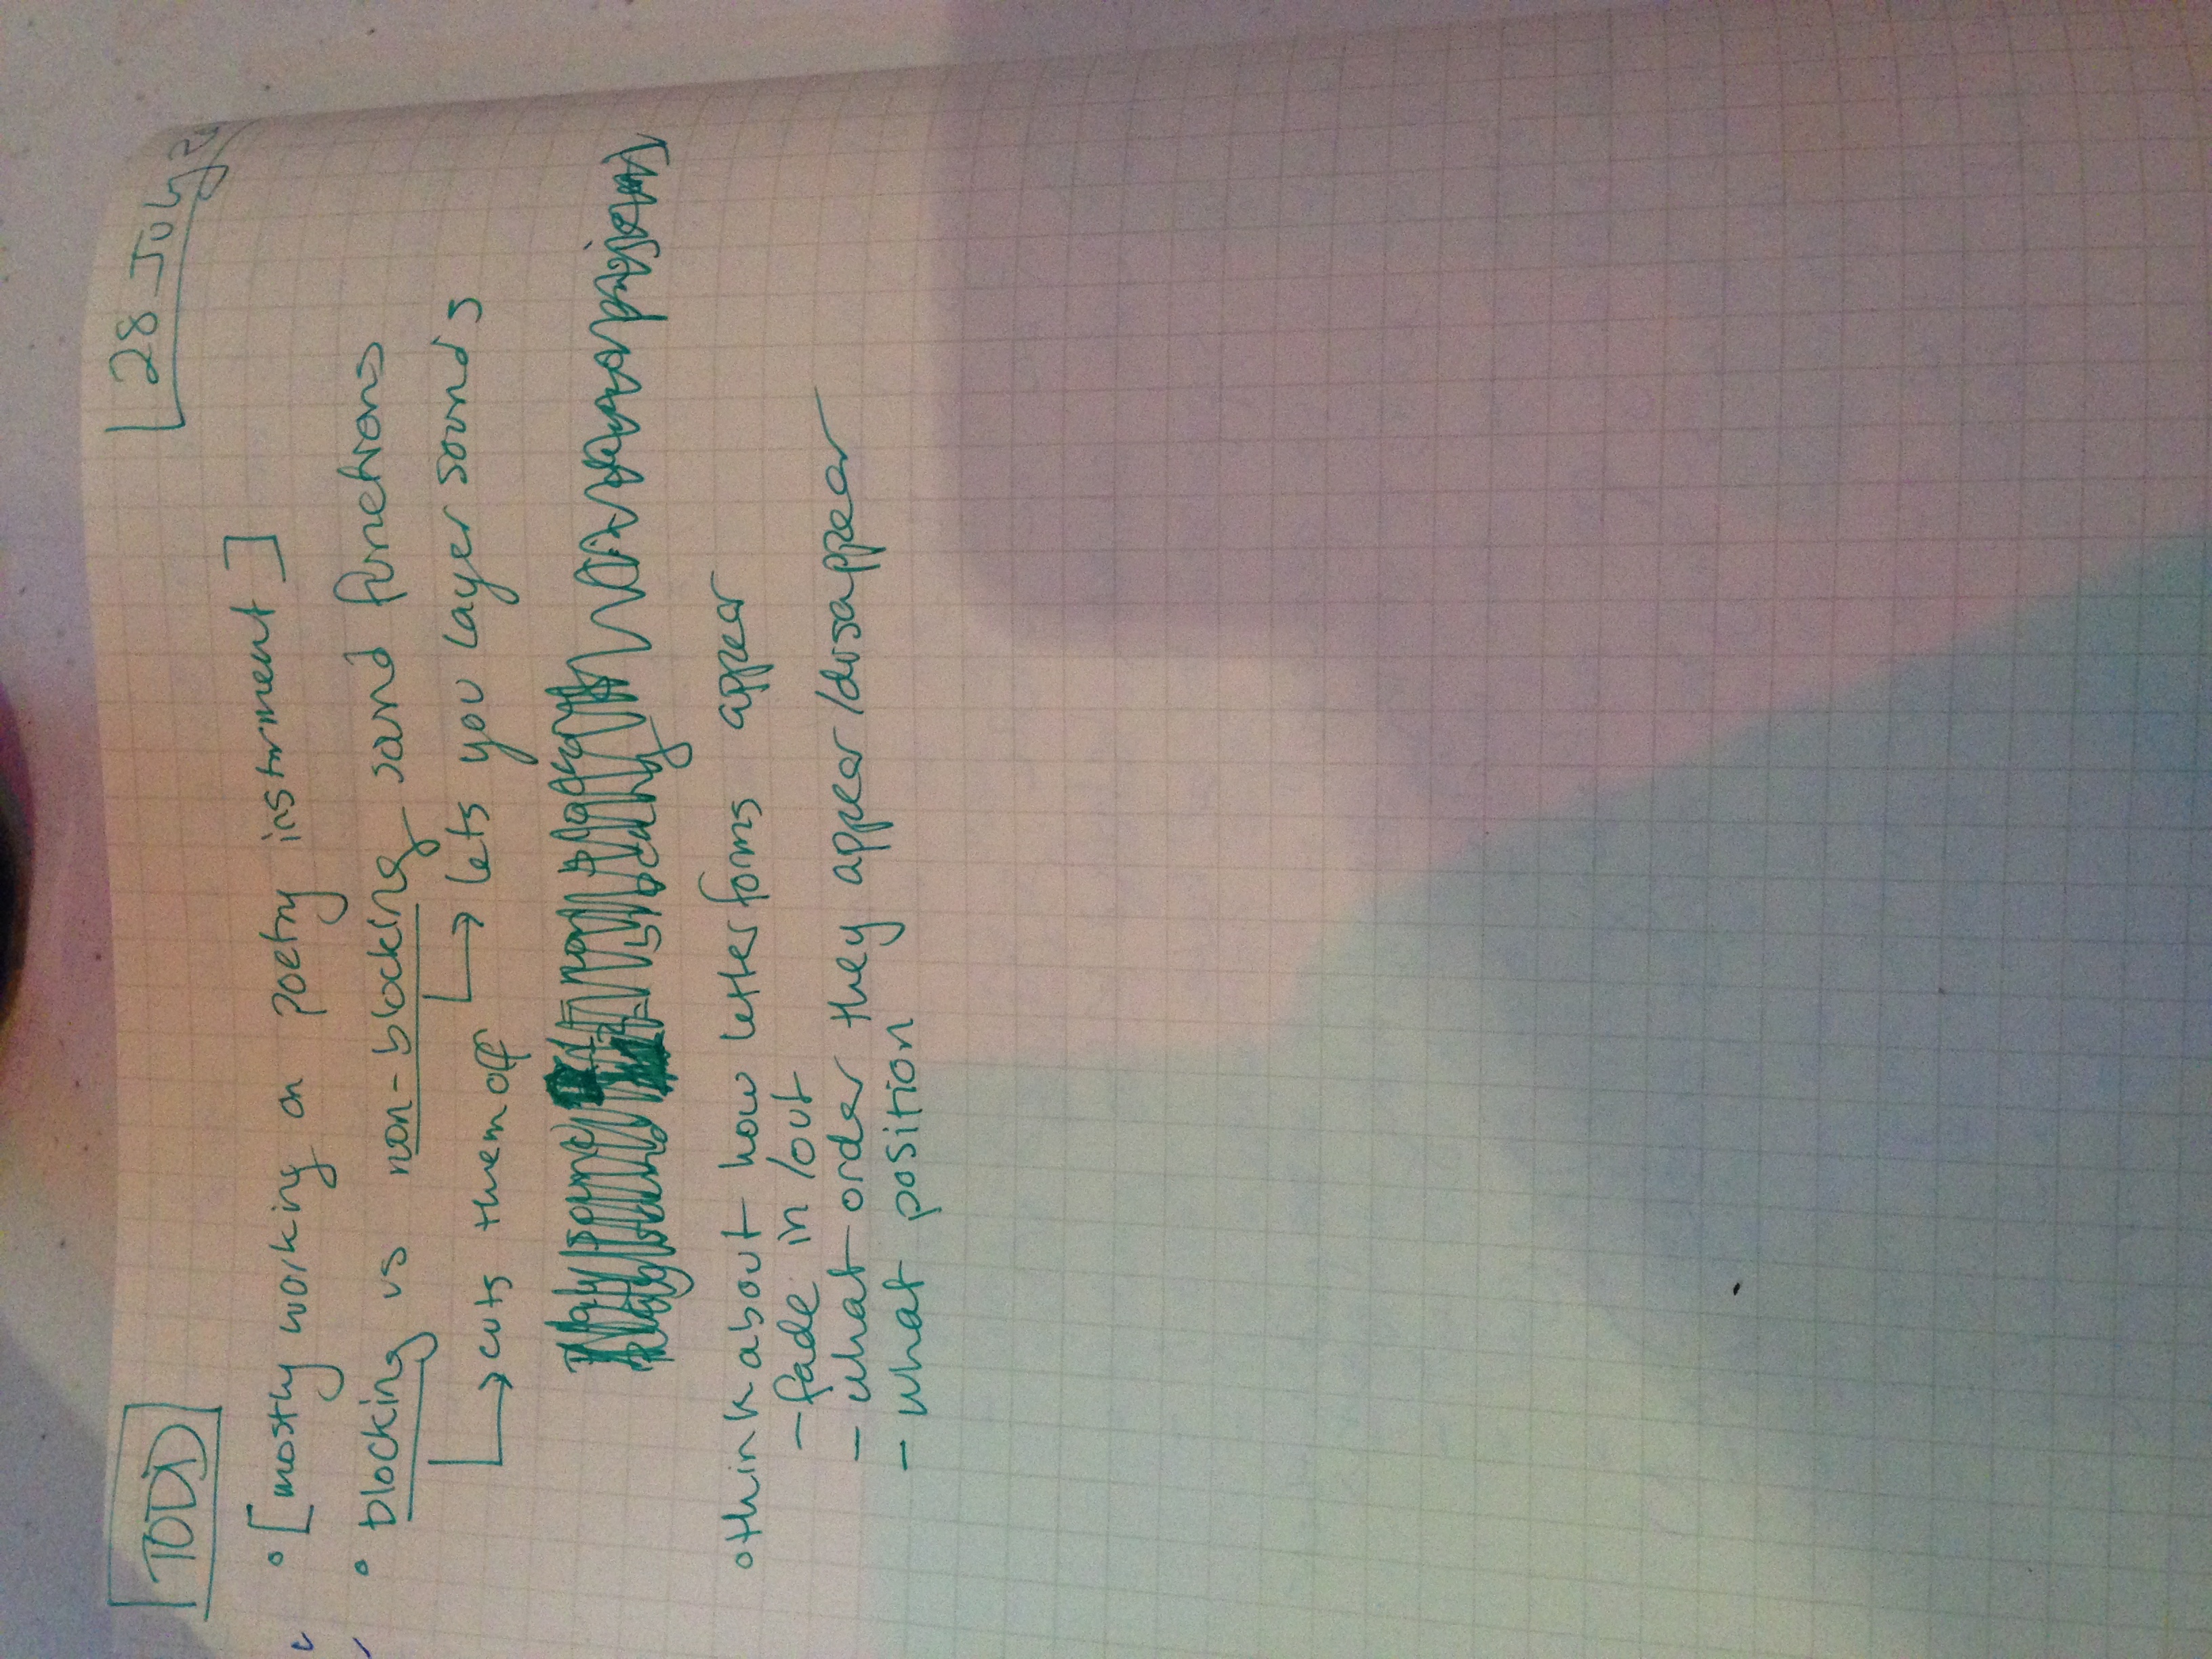 TODD
28 July
[mostly working on poetry instrment]
blocking vs non-blocking sound functions
cuts them off
lets you layer sounds
think about how letterforms appear
- fade in/out
- what order they appear/disappear
- what position